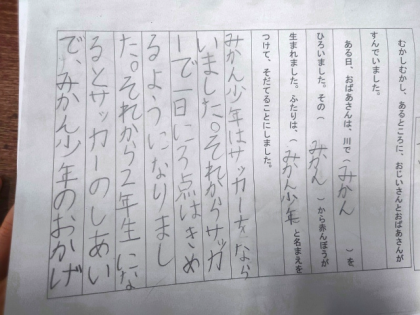 むかしむかし、あるところに、おじいさんとおばあさんが
すんでいました。
ある日、おばあさんは、川で（みかん）を
ひろいました。その（みかん）から赤んぼうが
生まれました。ふたりは、（みかん少年）と名まえを
つけて、そだてることにしました。
みかん少年はサッカーをなら
いました。それからサッカ
ーで一日に5点はきめ
るようになりまし
た。それから2年生にな
るとサッカーのしあい
で、みかん少年のおかげ